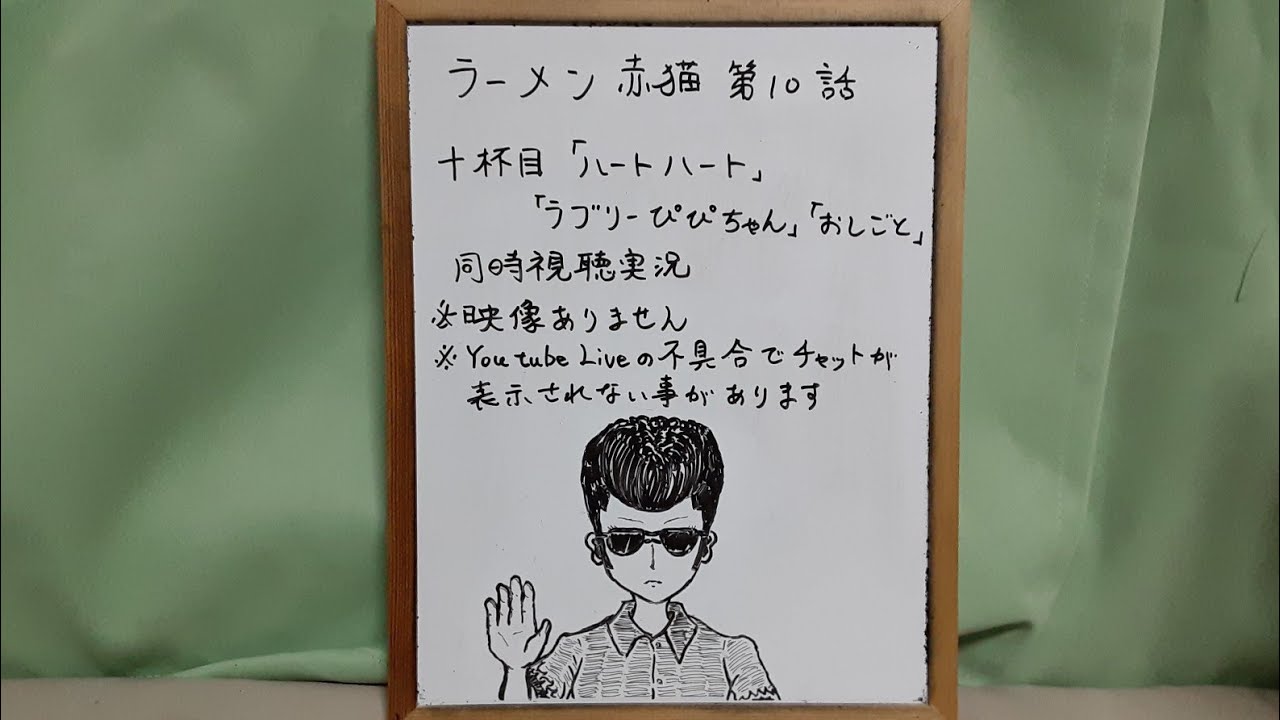 ラーメン 赤猫 第10話
十杯目「ハートハート」
「ラブリーぴぴちゃん」「おしごと」
同時視聴実況
※映像ありません
※Youtube Liveの不具合でチャットが
表示されない事があります